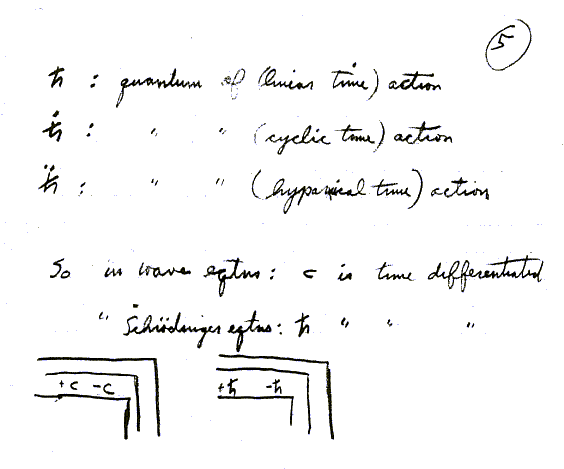 5
ħ : quantum of (linear time) action
ħ̇ : " " (cyclic time) action
ħ̈ : " " ( time) action
So in wave eqtns : c is time differentiated
" Schrödinger eqtns : ħ " " "
+c -c +ħ -ħ